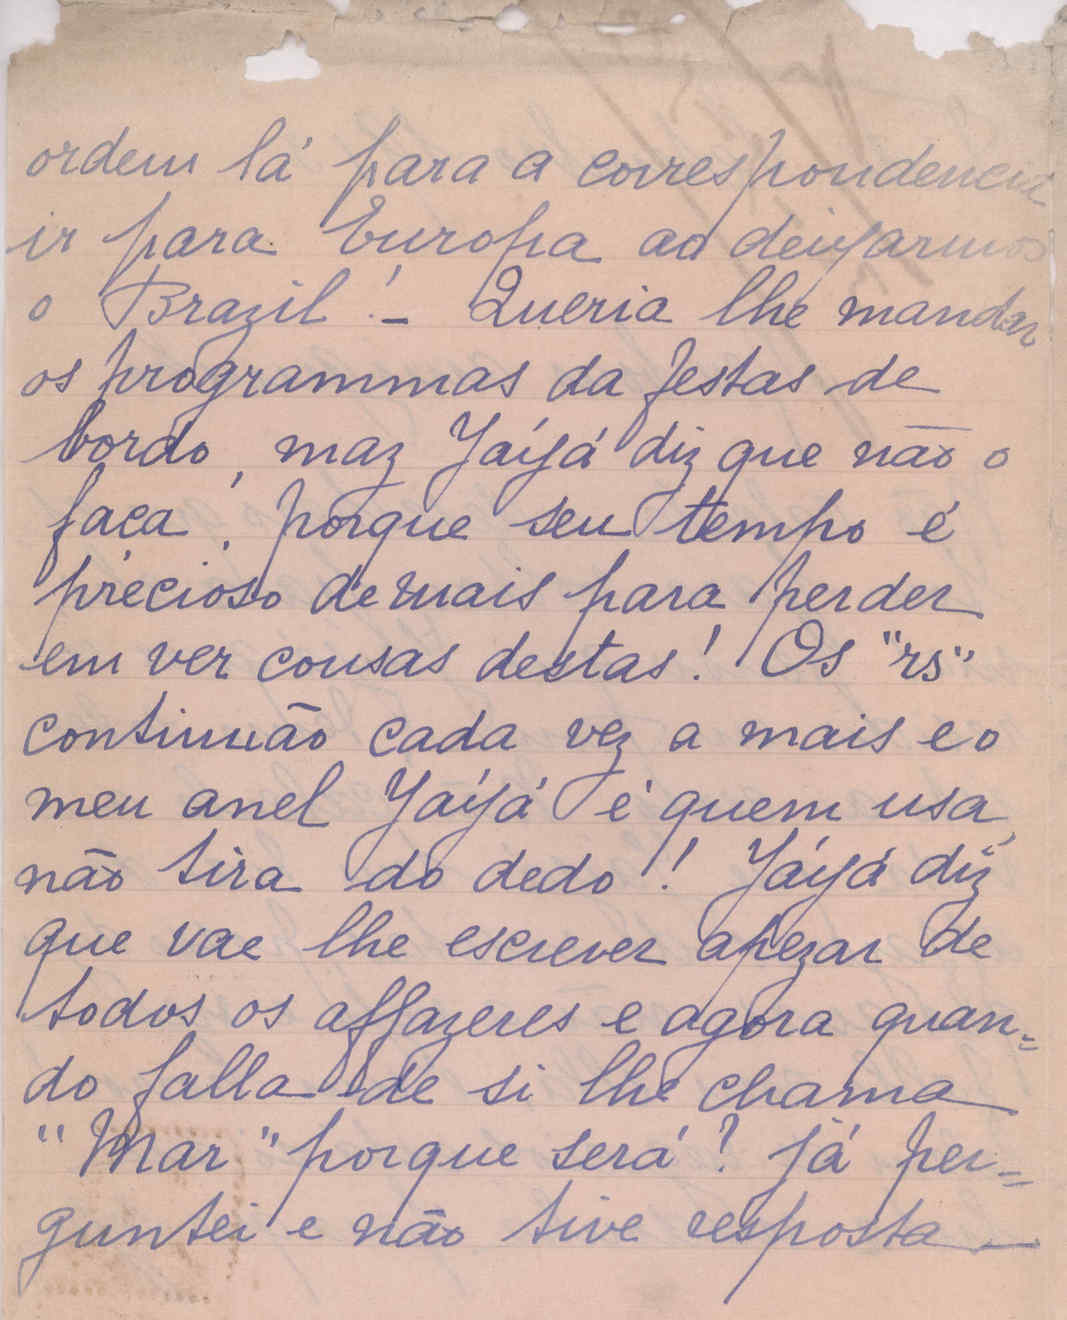 ordem lá para a correspondencia
ir para Europa ao deixarmos
o Brazil! – Queria lhe mandar
os programmas da festas de
bordo, maz Yáýá diz que não o
faça, porque seu tempo é
précioso demais para perder
em ver cousas destas! Os "rs"
continuão cada vez a mais e o
meu anel Yáýá é quem usa,
não tira do dedo! Yáýá diz
que vae lhe escrever apezar de
todos os affazeres e agora quan=
do falla de si lhe chama
"Mar" porque será? já per=
guntei e não tive resposta –